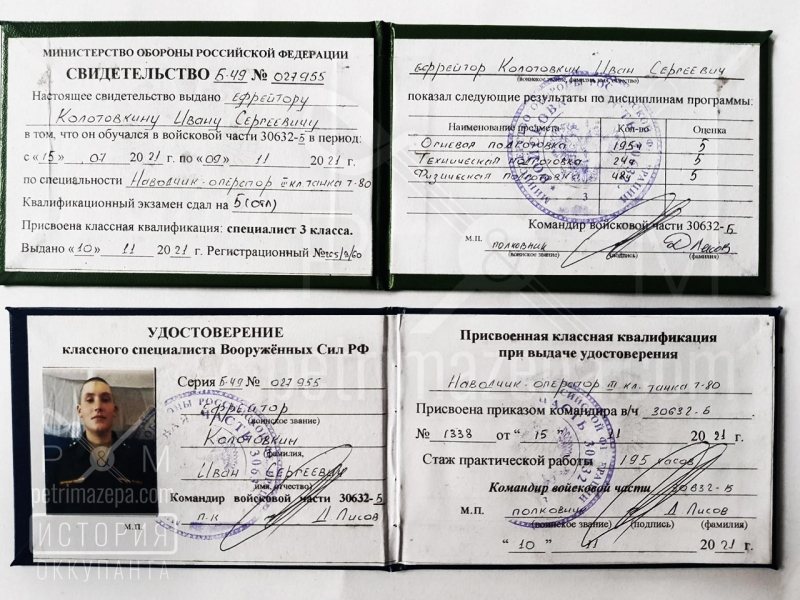 МИНИСТЕРСТВО ОБОРОНЫ РОССИЙСКОЙ ФЕДЕРАЦИИ
СВИДЕТЕЛЬСТВО Б-49 № 027955
Настоящее свидетельство выдано ефрейтору
Колотовкину Ивану Сергеевичу
в том, что он обучался в войсковой части 30632-Б в период:
с «15» 07 2021 г. по «09» 11 2021 г.
по специальности Наводчик-оператор III кл. танка Т-80
Квалификационный экзамен сдал на 5(отл)
Присвоена классная квалификация: специалист 3 класса.
Выдано «10» 11 2021 г. Регистрационный №
ефрейтор Колотовкин Иван Сергеевич
(воинское звание, фамилия, имя, отчество)
показал следующие результаты по дисциплинам программы:
Наименование предмета Кол-во Оценка
Огневая подготовка 195ч 5
Техническая подготовка 24ч 5
Физическая подготовка 48ч 5
Командир войсковой части 30632-Б
М.П. полковник Д Лисов
(воинское звание) (подпись) (фамилия)
УДОСТОВЕРЕНИЕ
классного специалиста Вооружённых Сил РФ
Серия Б-49 № 027955
ефрейтор
(воинское звание)
Колотовкин
фамилия,
Иван Сергеевич
имя, отчество)
Командир войсковой части 30632-Б
п-к Д Лисов
М.П.
Присвоенная классная квалификация
при выдаче удостоверения
Наводчик-оператор III кл. танка Т-80
Присвоена приказом командира в/ч 30632-Б
№ 1338 от "15" 2021 г.
Стаж практической работы 195 часов
Командир войсковой части 30632-Б
М.П. полковник Д Лисов
(воинское звание) (подпись) (фамилия)
"10" 11 2021 г.
P & M
petrimazepa.com
ИСТОРИЯ
ОККУПАНТА